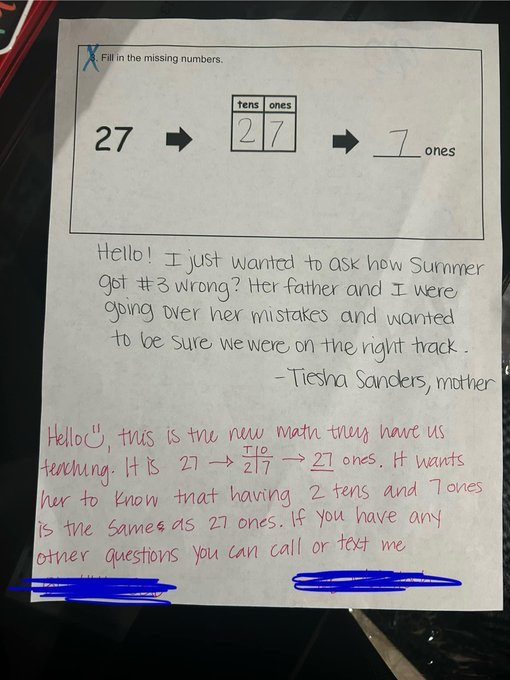 3. Fill in the missing numbers.
tens ones
27 2 7 7 ones
Hello! I just wanted to ask how Summer
got #3 wrong? Her father and I were
going over her mistakes and wanted
to be sure we were on the right track.
-Tiesha Sanders, mother
Hello, this is the new math they have us
T|O
teaching. It is 27 → 2|7 → 27 ones. It wants
her to know that having 2 tens and 7 ones
is the same as 27 ones. If you have any
other questions you can call or text me